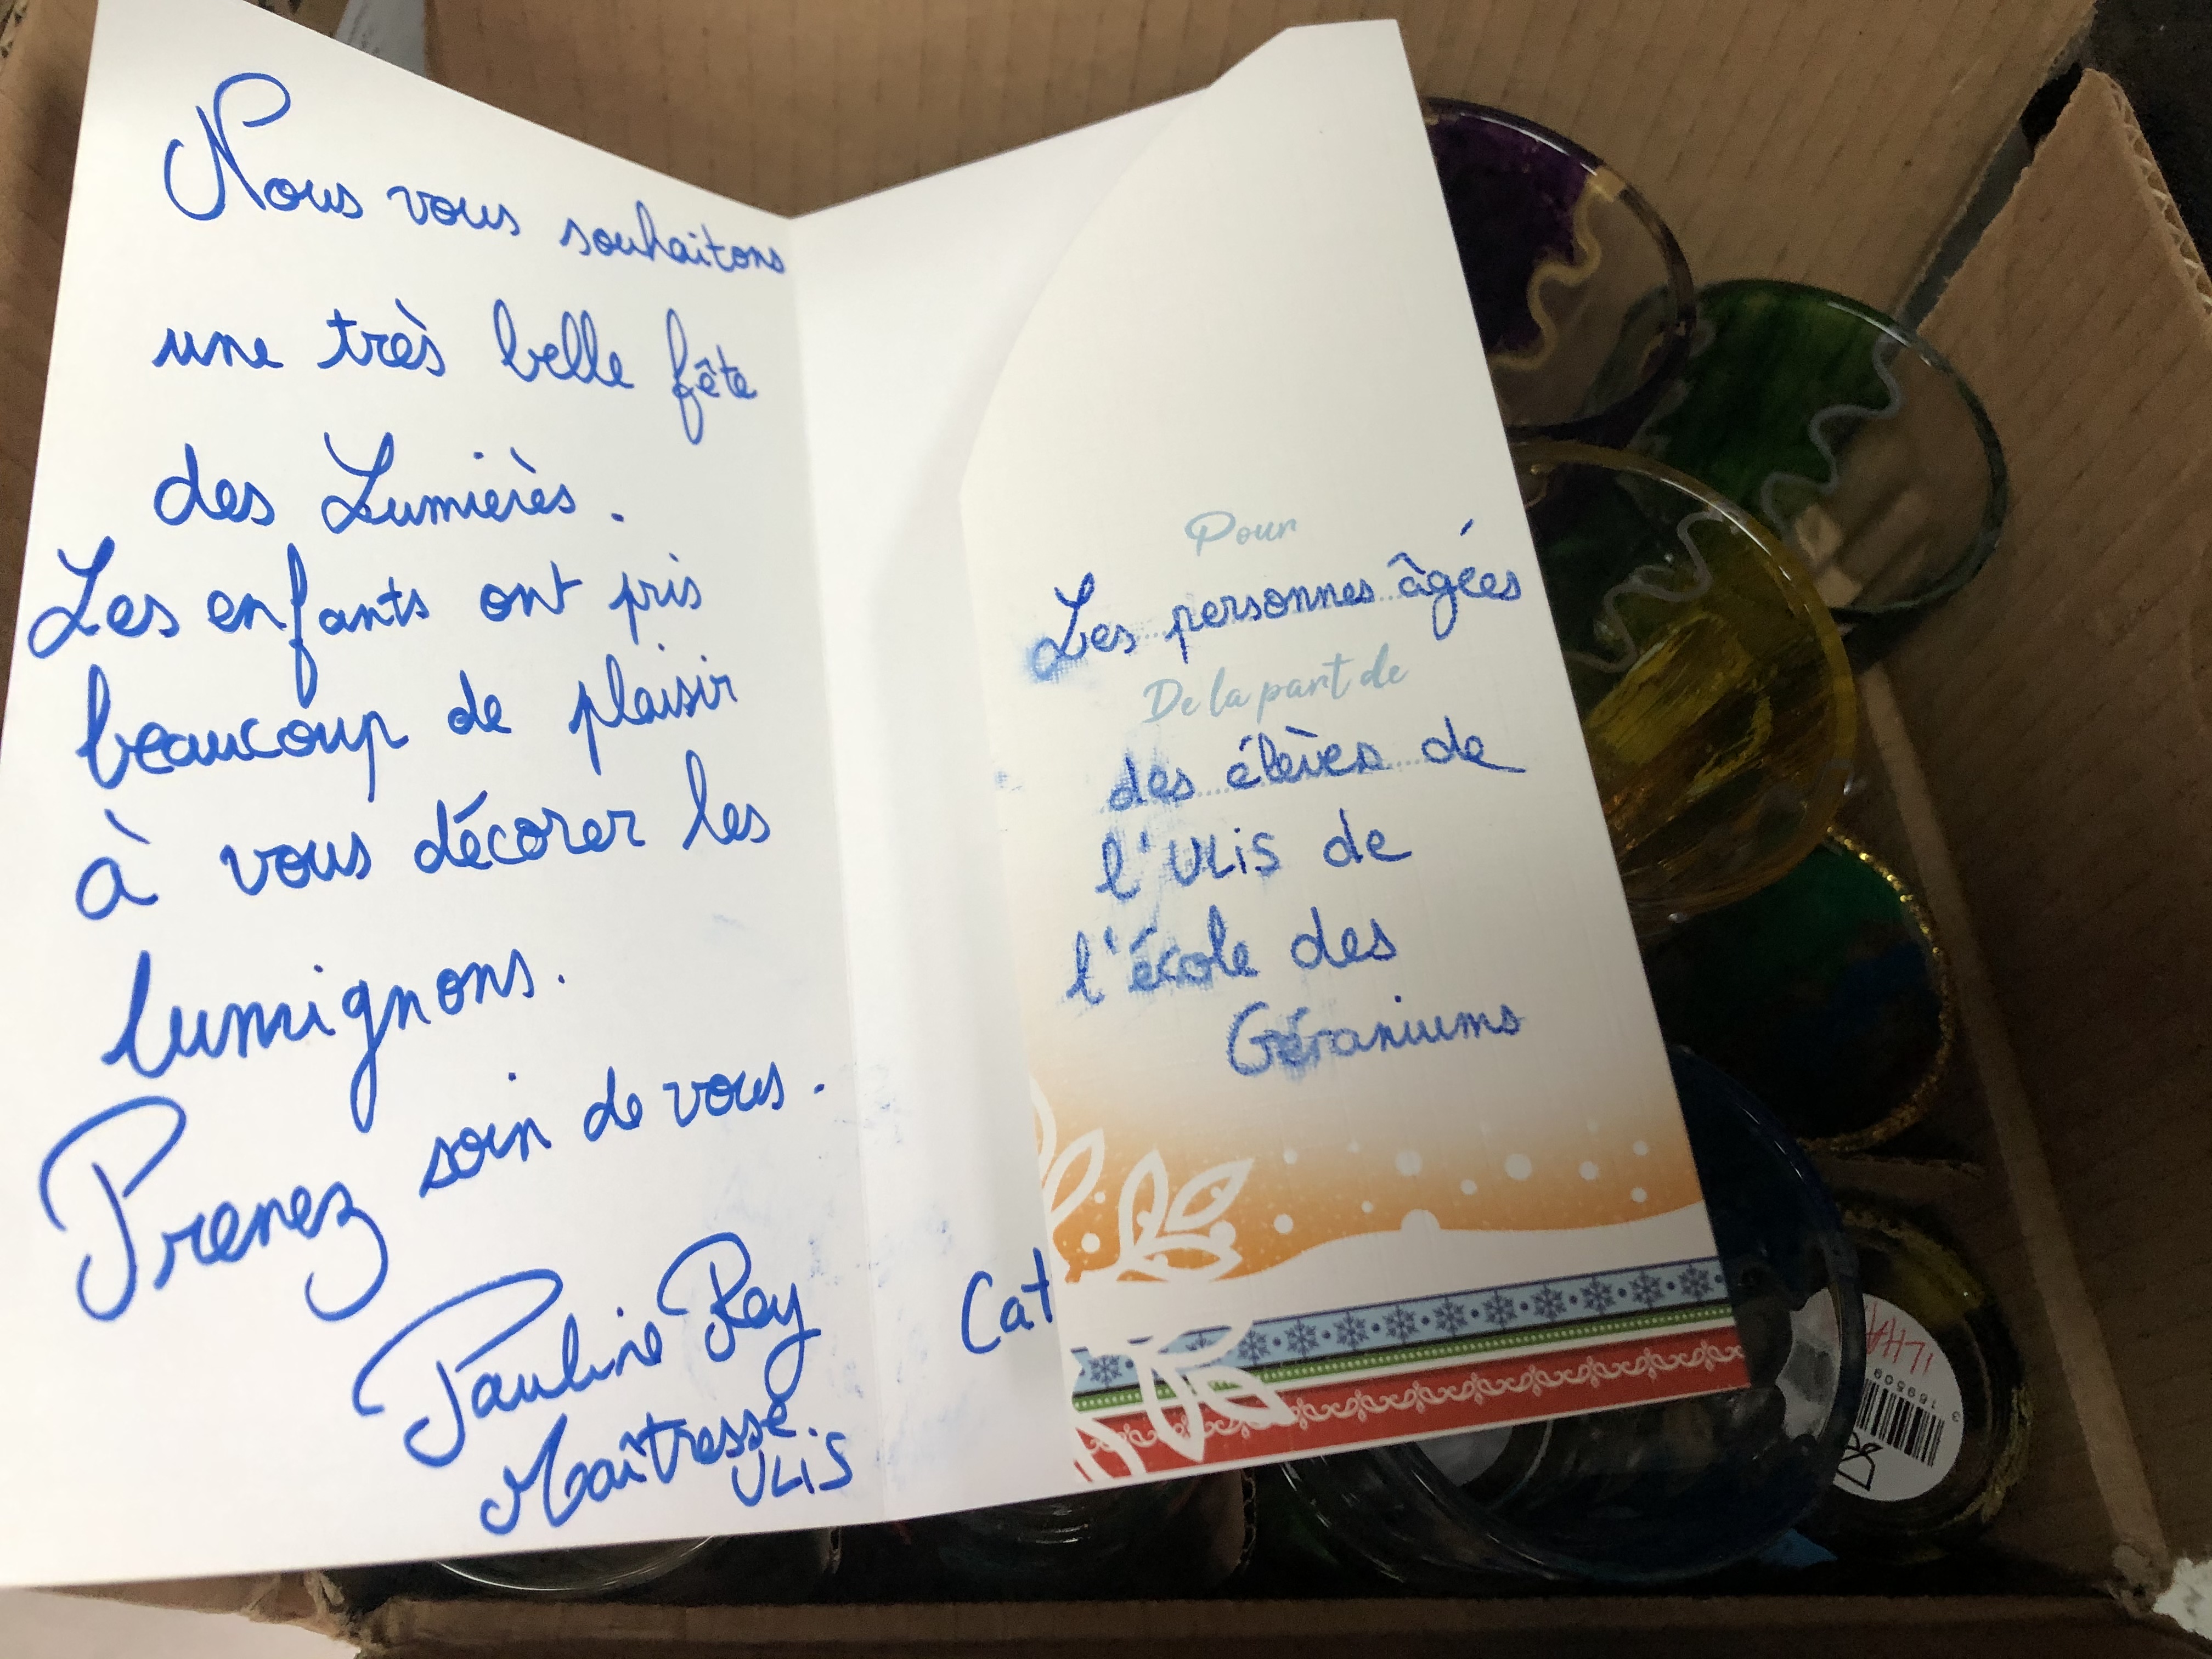 Nous vous souhaitons
une très belle fête
des Lumières.
Les enfants ont pris
beaucoup de plaisir
à vous décorer les
lumignons.
Prenez soin de vous.
Pauline Rey
Maîtresse
ULiS
Cat
Pour
Les personnes âgées
De la part de
des élèves de
l'ULiS de
l'école des
Géraniums